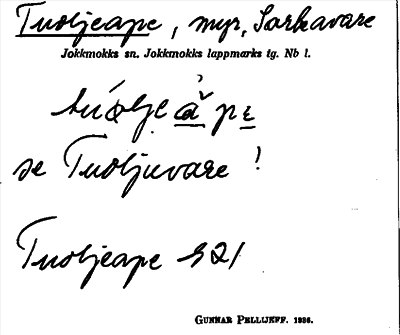 Tuoljeape, myr, Sarkavare
Jokkmokks sn. Jokkmokks lappmarks tg. Nb l.
se Tuoljuvare!
Tuoljeape 521
GUNNAR PELLIJEFF. 1936.